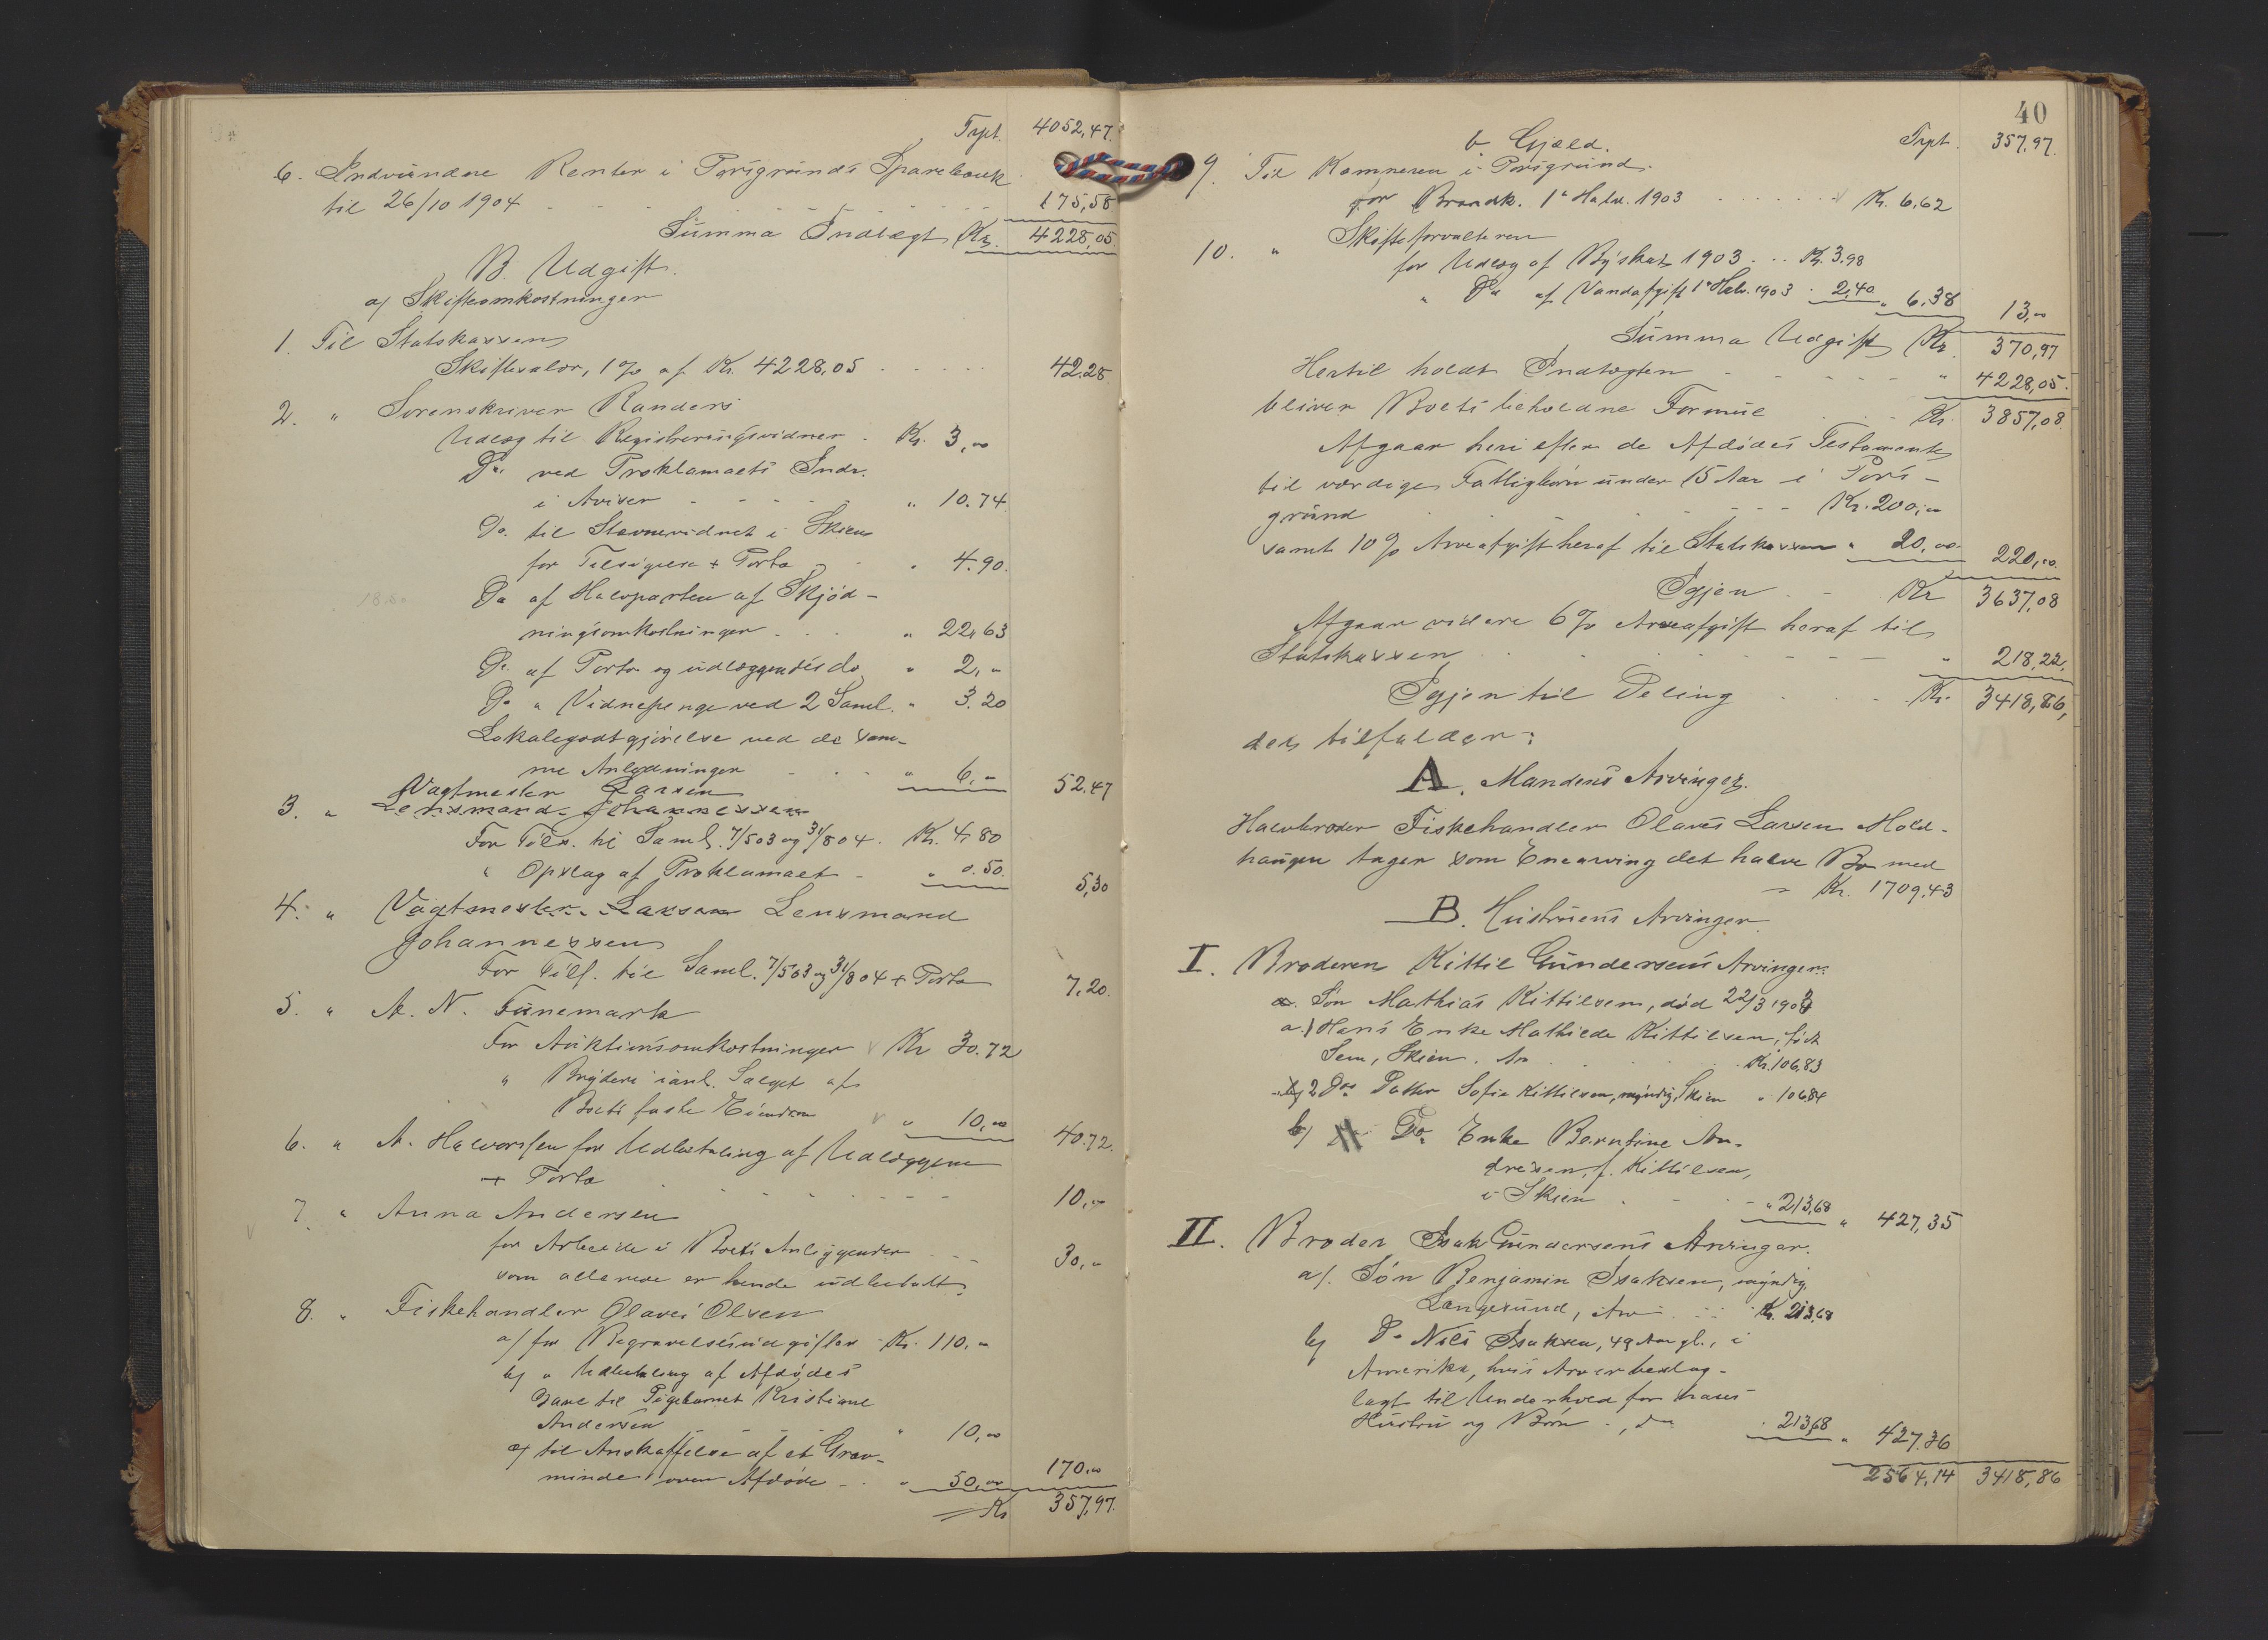 Trpt. 4052,47.
6. Indvundne Renter i Porsgrunds Sparebank
til 26/10 1904 175,58
Summa Indtægt Kr. 4228,05
B. Udgift.
a/ Skifteomkostninger
1. Til Statskassen
Skiftesalær, 1% af Kr. 4228,05 42.28
2. " Sorenskriver Randers
Udlæg til Registreringsvidner Kr. 3,00
Do ved Proklamaets Indr.
i Aviser " 10.74
Do. til Stævnevidnet i Skien
for Tilsigelse + Porto " 4.90.
Do af Halvparten af Skjød-
ningsomkostninger " 22,63
Do af Porto og do " 2,"
Do " Vidnepenge ved 2 Saml. " 3.20
Lokalegodtgjørelse ved de sam-
me Anledninger " 6." 52.47
Vagtmester Larsen
3. " Lensmand Johannessen
For Tils. til Saml. 7/5 03 og 31/8 04. Kr. 4,80
" Opslag af Proklamaet " 0.50. 5,30
4. " Vagtmester Larsen Lensmand
Johannessen
For Tils. til Saml. 7/5 03 og 31/8 04 + Porto 7,20.
5. " A. N. Funemark
For Auktionsomkostninger Kr 30.72
" Bryderi i anl. Salget af
Boets faste Eiendom " 10,00 40.72.
6. " A. Halvorsen for Udbetaling af Udlæggene
+ Porto 10,"
7. " Anna Andersen
for Arbeide i Boets Anliggender
som allerede er hende udbetalt. 30,"
8. " Fiskehandler Olaves Olsen
a/ for Begravelsesudgifter Kr. 110,"
b/ " Udbetaling af Afdødes
Gave til Pigebarnet Kristiane
Andersen " 10,00
c/ til Anskaffelse af et Grav-
minde over Afdøde " 50,00 170.00
Kr 357,97.
40
b Gjæld. Trpt. 357,97.
9. Til Kæmneren i Porsgrund.
for Brandk. 1ste Halv. 1903 Kr. 6,62
10. " Skifteforvalteren
for Udlæg af Byskat 1903 Kr. 3.98
" Do af Vandafgift 1ste Halv. 1903 2,40 " 6,38 13,00
Summa Udgift Kr. 370,97
Hertil holdt Indtægten " 4228,05.
bliver Boets beholdne Formue Kr. 3857,08.
Afgaar heri efter de Afdødes Testamente
til værdige Fattigbørn under 15 Aar i Pors-
grund Kr. 200,00
samt 10% Arveafgift heraf til Statskassen " 20,00 220,00.
Igjen Kr 3637,08
Afgaar videre 6% Arveafgift heraf til
Statskassen " 218,22,
Igjen til Deling Kr. 3418,86,
der tilfalder:
A. Mandens Arvinger.
Halvbroder Fiskehandler Olaves Larsen Mold-
haugen tager som Enearving det halve Bo med
Kr. 1709.43
B. Hustruens Arvinger.
I. Broderen Kittil Gundersens Arvinger.
a. Søn Mathias Kittilsen, død 22/3 1904
a.1 Hans Enke Mathilde Kittilsen, født
Sem, Skien. Kr. 106,83
2 Do Datter Sofie Kittilsen, myndig, Skien " 106.84
b/ Do. Enke Berntine An-
dresen, f. Kittilsen,
i Skien " 213,68 " 427,35
II. Broder Isak Gundersens Arvinger.
a/. Søn Benjamin Isaksen, myndig,
Langesund, Arv Kr. 213,68
b/ Do Nils Isaksen, 49 Aar gl., i
Amerika, hvis Arv er beslag-
lagt til Underhold for hans
Hustru og Børn, do 213,68 " 427,36
2564,14 3418,86